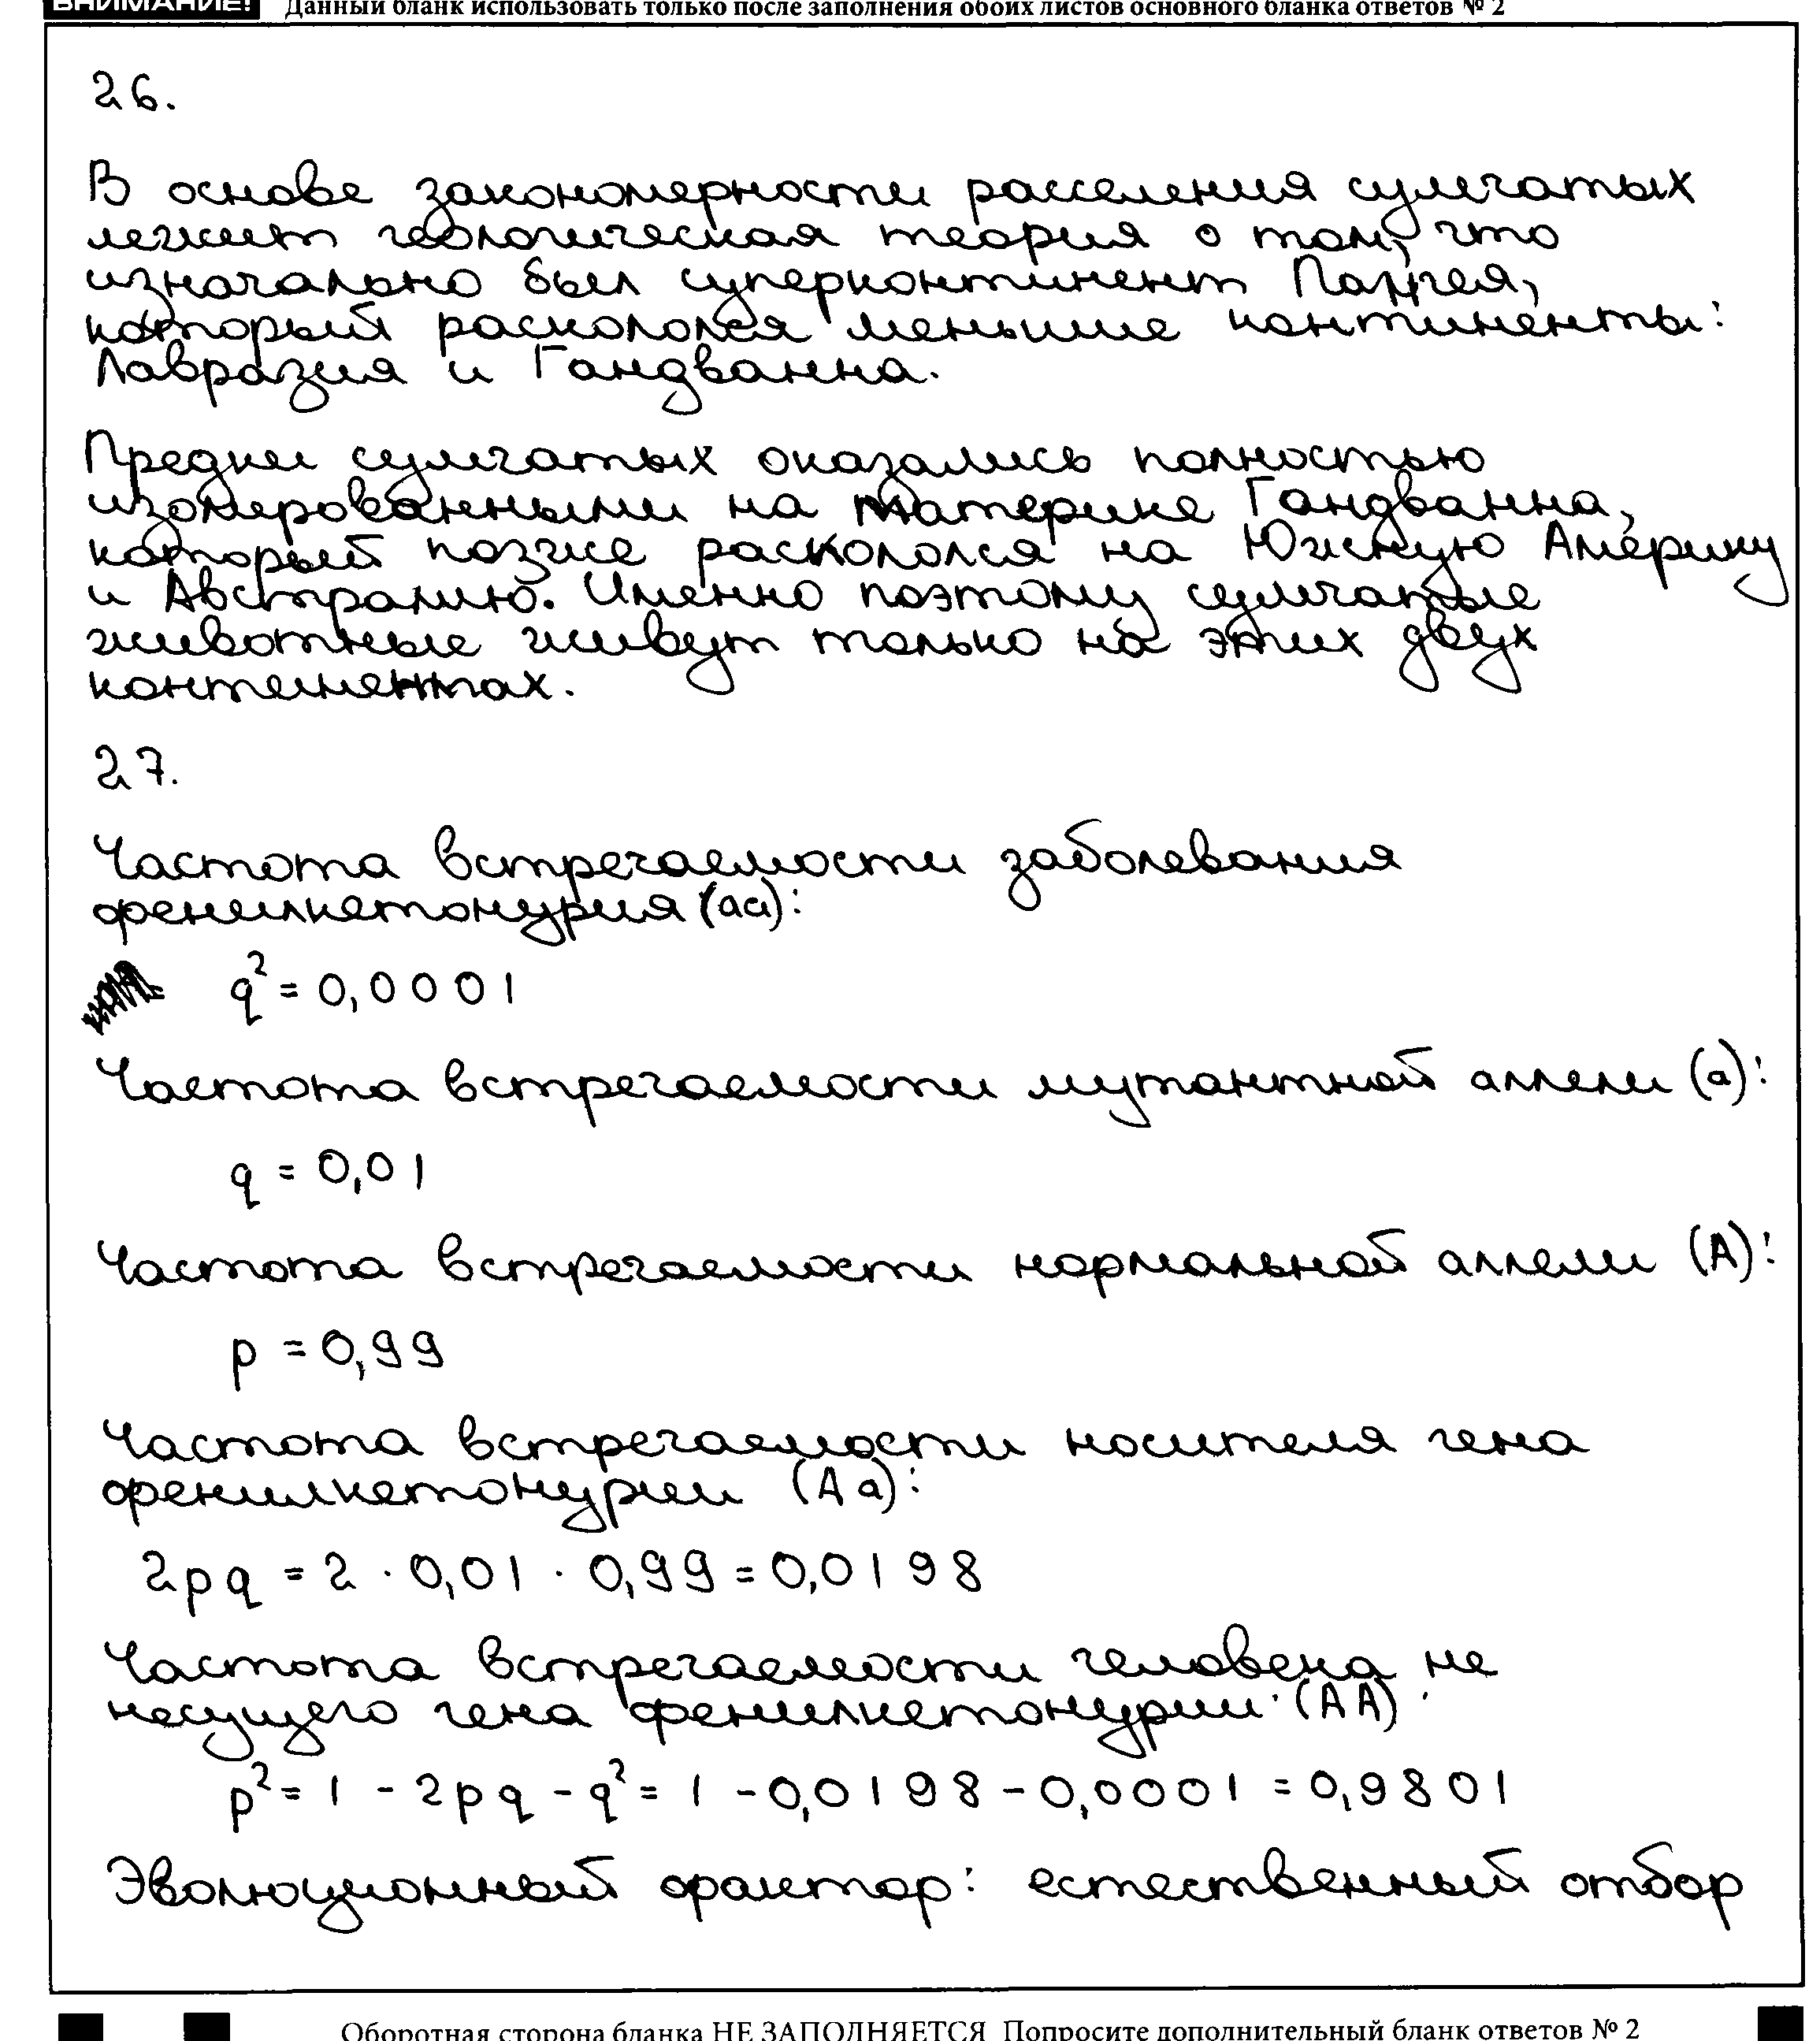 ВНИМАНИЕ! Данный бланк использовать только после заполнения обоих листов основного бланка ответов № 2
26.
В основе закономерности расселения сумчатых
лежит геологическая теория о том, что
изначально был суперконтинент Пангея,
который раскололся меньшие континенты:
Лавразия и Гандванна.
Предки сумчатых оказались полностью
изолированными на материке Гандванна,
который позже раскололся на Южную Америку
и Австралию. Именно поэтому сумчатые
животные живут только на этих двух
континентах.
27.
Частота встречаемости заболевания
фенилкетонурия (aa):
q² = 0,0001
Частота встречаемости мутантной аллели (a):
q = 0,01
Частота встречаемости нормальной аллели (A):
p = 0,99
Частота встречаемости носителя гена
фенилкетонурии (Aa):
2pq = 2 · 0,01 · 0,99 = 0,0198
Частота встречаемости человека не
несущего гена фенилкетонурии (AA):
p² = 1 - 2pq - q² = 1 - 0,0198 - 0,0001 = 0,9801
Эволюционный фактор: естественный отбор
Оборотная сторона бланка НЕ ЗАПОЛНЯЕТСЯ. Попросите дополнительный бланк ответов № 2